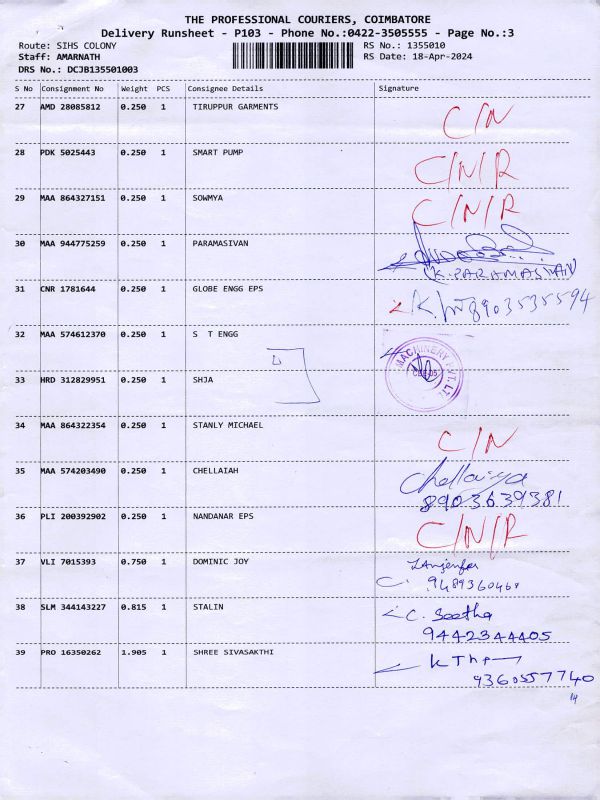 THE PROFESSIONAL COURIERS, COIMBATORE
Delivery Runsheet - P103 - Phone No.:0422-3505555 - Page No.:3
Route: SIHS COLONY RS No.: 1355010
Staff: AMARNATH RS Date: 18-Apr-2024
DRS No.: DCJB135501003
S No Consignment No Weight PCS Consignee Details Signature
27 AMD 28085812 0.250 1 TIRUPPUR GARMENTS C/N
28 PDK 5025443 0.250 1 SMART PUMP C/N/R
29 MAA 864327151 0.250 1 SOWMYA C/N/R
30 MAA 944775259 0.250 1 PARAMASIVAN
(K. PARAMASIVAN)
31 CNR 1781644 0.250 1 GLOBE ENGG EPS 8903535594
32 MAA 574612370 0.250 1 S T ENGG
MACHINERY PVT. LTD
33 HRD 312829951 0.250 1 SHJA
34 MAA 864322354 0.250 1 STANLY MICHAEL C/N
35 MAA 574203490 0.250 1 CHELLAIAH Chellaiya
8903639381
36 PLI 200392902 0.250 1 NANDANAR EPS C/N/R
37 VLI 7015393 0.750 1 DOMINIC JOY
9489360468
38 SLM 344143227 0.815 1 STALIN C. Seetha
9442344405
39 PRO 16350262 1.905 1 SHREE SIVASAKTHI
9360557740
14